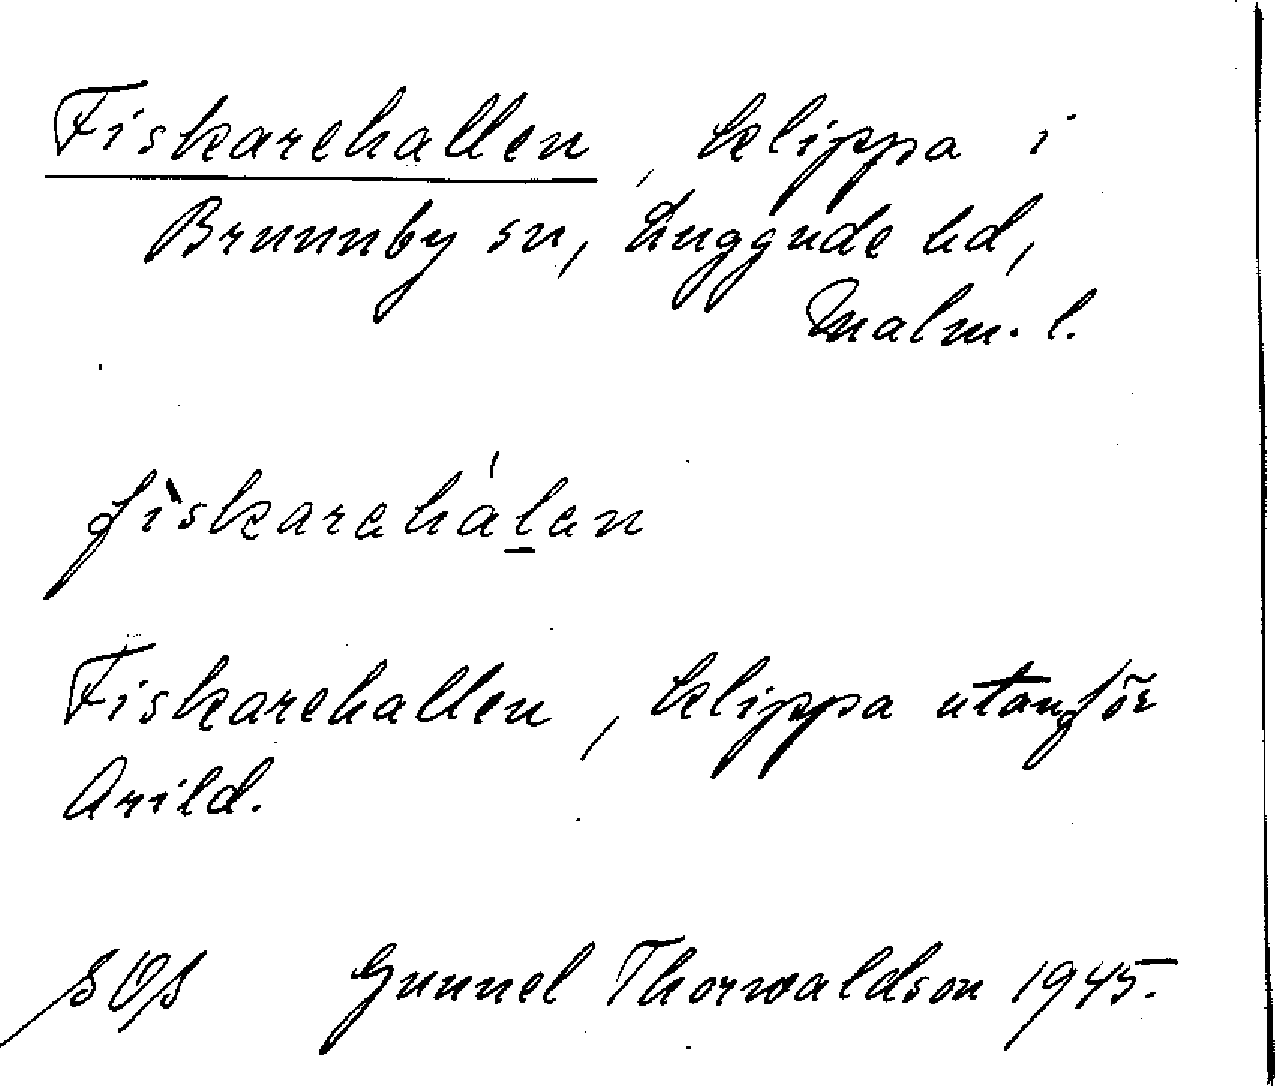 Fiskarehallen, klippa i
Brunnby sn, Luggude hd,
Malm. l.
fìskarahál̲an
Fiskarehallen, klippa utanför
Arild.
SOS Gunnel Thorwaldson 1945.